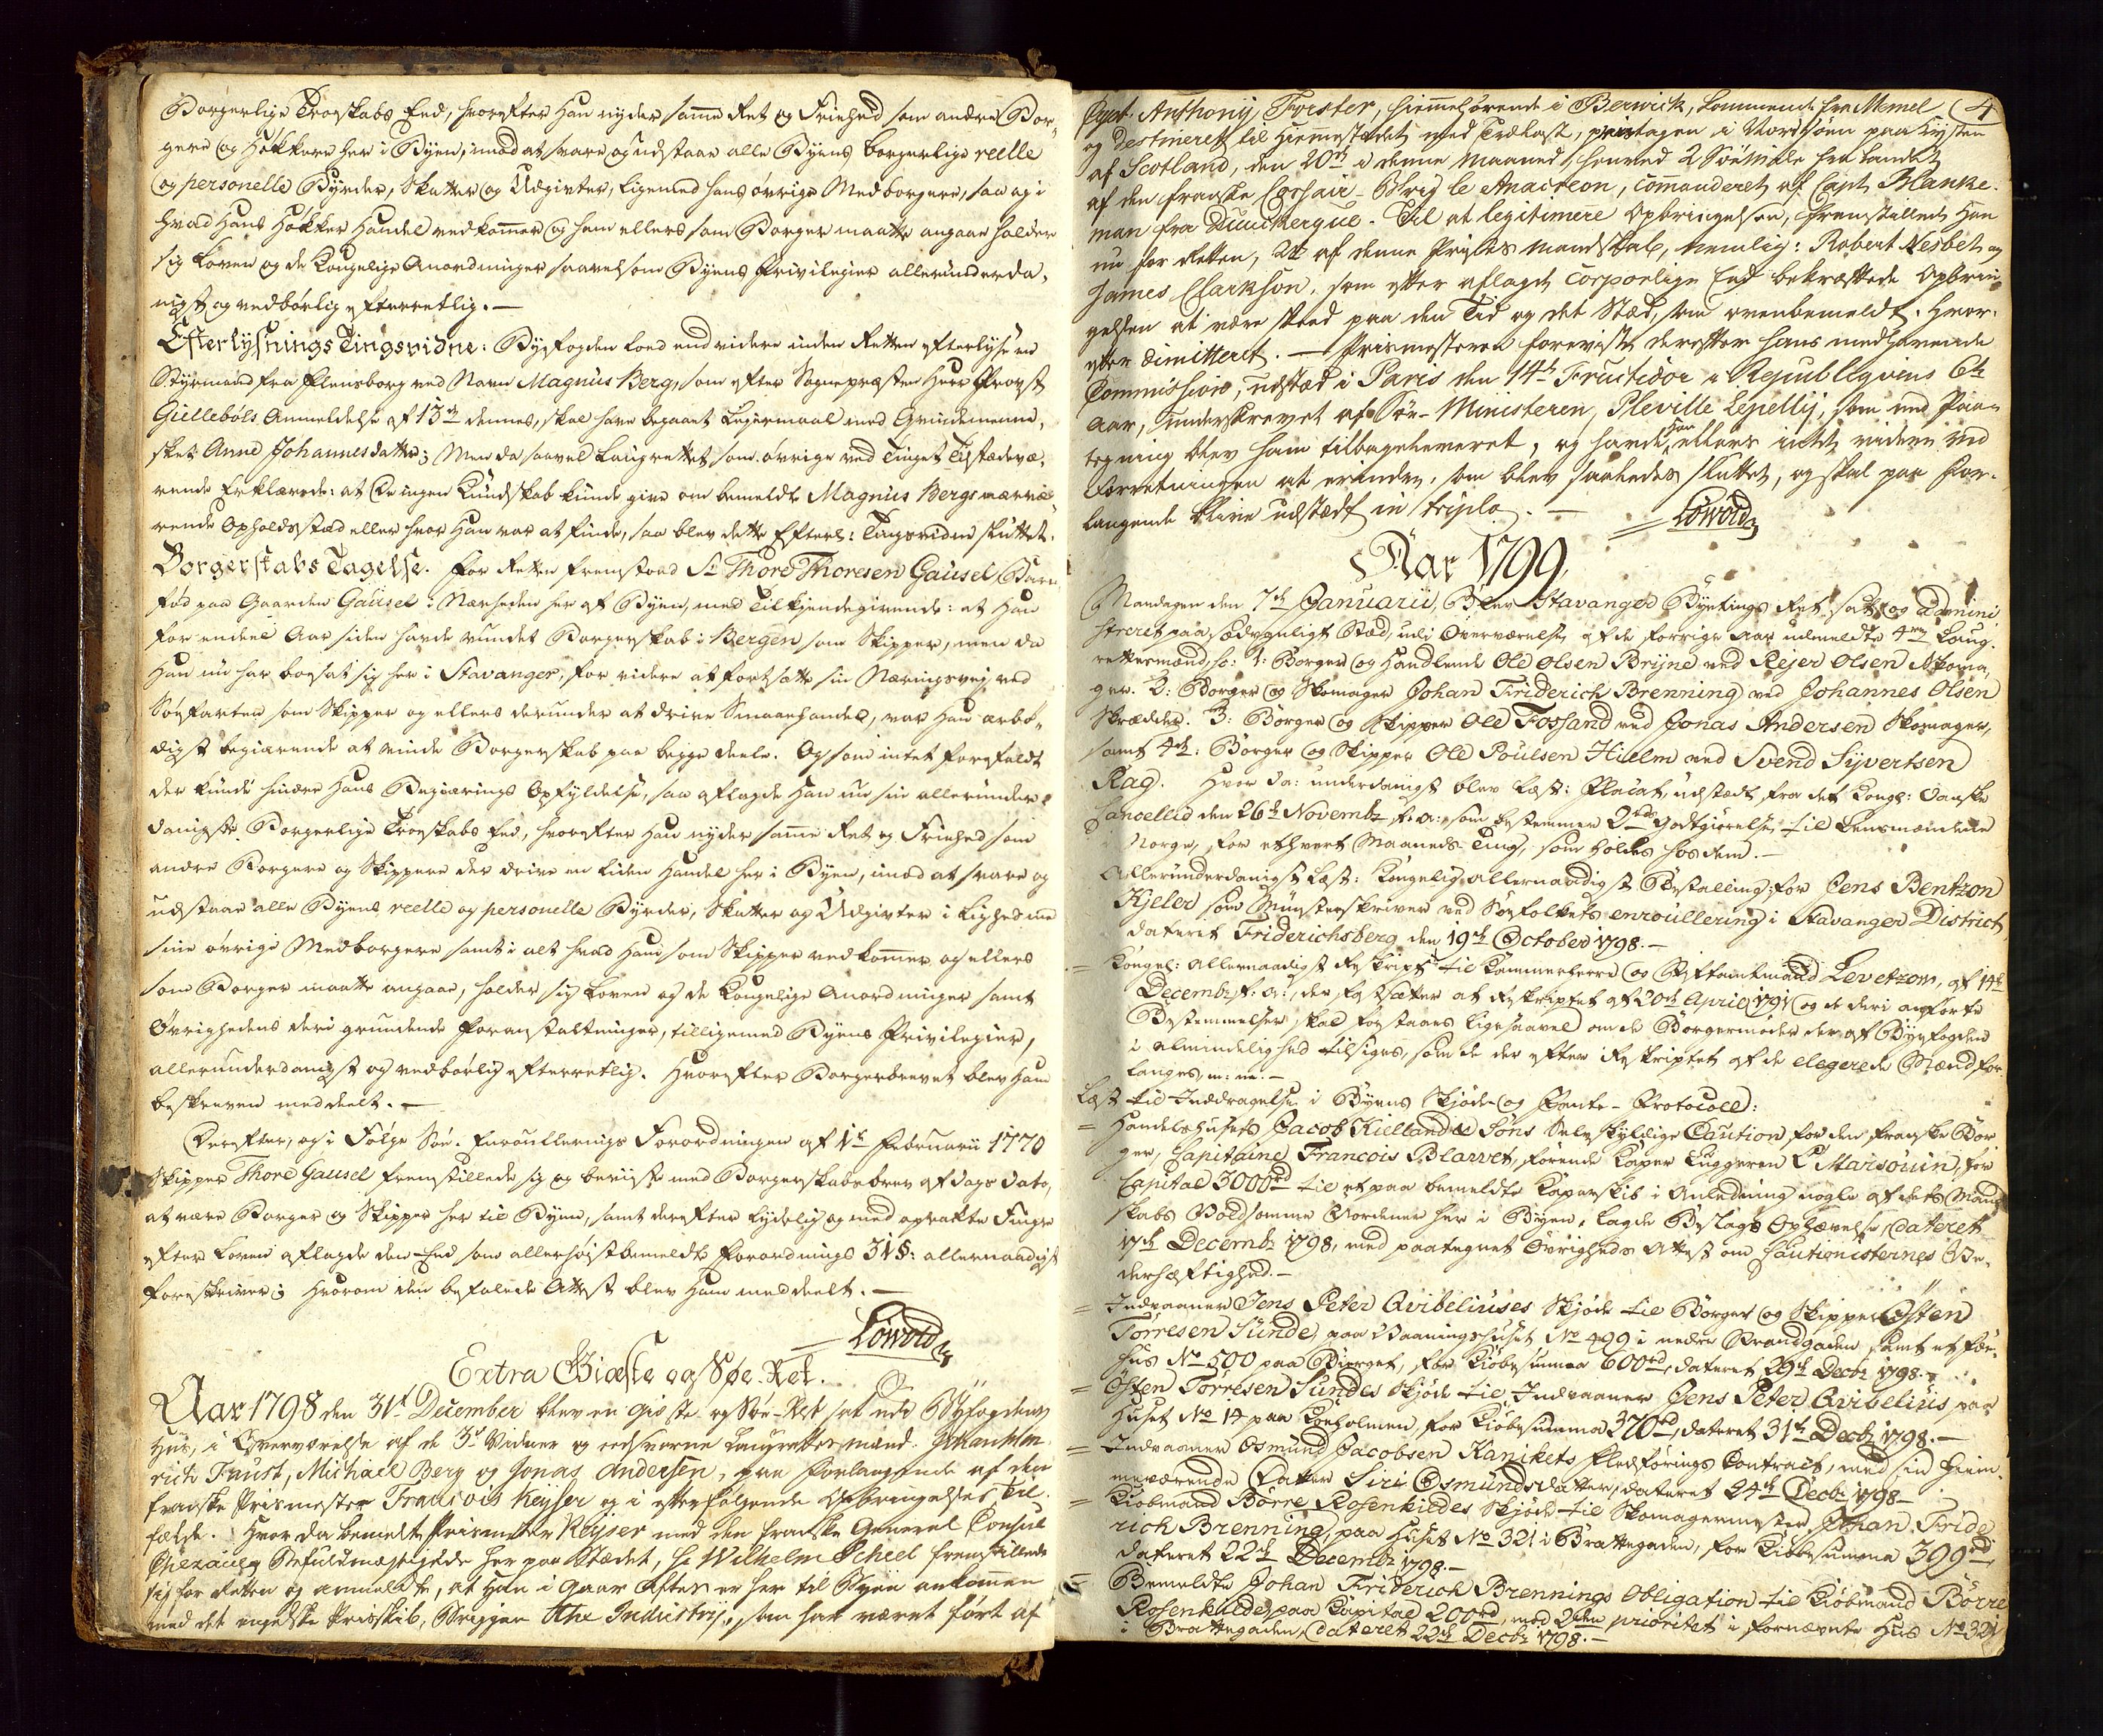 Borgerlige Troeskabs Eed, hvorefter Han nyder samme Ret og Friehed som andre Bor,
gere og Høkkere her i Byen, imod at svare og udstaae alle Byens borgerlige reelle
og personelle Byrder, Skatter og Udgivter, ligemed hans øvrige Medborgere, saa og i
hvad Hans Høkker Handel vedkommer og ham ellers som Borger maatte angaae holder
sig Loven og de Kongelige Anordninger saavelsom Byens Privilegier allerunderda,
nigst og vedbørlig efterretlig. —
Efterlysnings Tingsvidne: Byefogden loed end videre inden Retten efterlyse en
Styrmand fra Flensborg ved Navn Magnus Berg, som efter Sognepræsten Herr Provst
Gullebøls Anmeldelse af 13de dennes, skal have begaaet Leiermaal med Qvindemenne,
sket Anne Johannesdatter; Men da saavel Laugrettet som øvrige ved Tinget Tilstædevæ,
rende Erklærede: at De ingen Kundskab kunde give om bemeldte Magnus Bergs nærvæ,
rende Opholdsstæd eller hvor Han var at finde, saa blev dette Efterl: Tingsvidne sluttet.
Borgerskabs Tagelse. For Retten fremstoed Sr Thore Thoresen Gausel Barn
fød paa Gaarden Gausel i Nærheden her af Byen, med Tilkjendegivende: at Han
for endeel Aar siden havde vundet Borgerskab i Bergen som Skipper, men da
Han nu har bosat sig her i Stavanger, for videre at fortsætte sin Næringsvej ved
Søefarten som Skipper og ellers derunder at drive Smaaehandel, var Han ærbø,
digst begiærende at vinde Borgerskab paa begge deele. Og som intet forefaldt
der kunde hindre Hans Begiærings Opfyldelse, saa aflagde Han nu sin allerunder,
danigste Borgerlige Troeskabs Eed, hvorefter Han nyder samme Ret og Friehed som
andre Borgere og Skippere der drive en liden Handel her i Byen, imod at svare og
udstaae alle Byens reelle og personelle Byrder, Skatter og Udgivter i Lighed med
sine øvrige Medborgere samt i alt hvad Ham som Skipper vedkommer og ellers
som Borger maatte angaae, holder sig Loven og de Kongelige Anordninger samt
Øvrighedens deri grundede Foranstaltninger, tilligemed Byens Privilegier,
allerunderdanigst og vedbørlig efterretlig. Hvorefter Borgerbrevet blev Ham
beskreven meddeelt. —
Derefter, og i Følge Søe-Enroullerings Forordningen af 1te Februarii 1770
Skipper Thore Gausel fremstillede sig og beviiste med Borgerskabsbrev af Dags Dato,
at være Borger og Skipper her til Byen, samt derefter lydelig og med oprakte Fingre
efter Loven aflagde den Eed som allerhøistbemeldte Forordnings 31 §: allernaadigst
foreskriver; Hvorom den befalede Attest blev Ham meddeelt. —
Løwold
Extra Gieste og Søe-Ret.
Aar 1798 den 31te December blev en Gieste og Søe-Ret sat udi Byefogdens
Huus, i Overværelse af de 3de Vidner og eedsvorne Laugrettesmænd: Johan Hen
rich Faust, Michael Berg og Jonas Andersen, paa Forlangende af den
franske Prismester Francois Keyser og i efterfølgende Opbringelses Til,
fælde. Hvor da bemeldte Prismester Keyser med den franske General Consul
Chezaulx Befuldmægtigede her paa Stædet, Hr Wilhelm Scheel fremstillede
sig for Retten og anmeldte, at Han i Gaar Aftes er her til Byen ankommen
med det engelske Prisskib, Briggen the Industry, som har været ført af
4
Capt. Anthony Forster, hiemmehørende i Berwick, kommende fra Memel
og destineret til Hiemmestædet med Trælast, pristagen i Nordsøen paa Kysten
af Scotland, den 20de i denne Maaned, henved 2 Søemiile fra Landet
af den franske Corsair-Brig le Anacreon, commanderet af Capt. Blanke-
man fra Dunckerque. Til at legitimere Opbringelsen, fremstillede Han
nu for Retten, 2de af denne Prises Mandskab, nemlig: Robert Nesbet og
James Clarkson, som efter aflagde corporlige Eed bekræftede Opbrin,
gelsen at være skeed paa den Tid og det Stæd, som ovenbemeldt. Hvor,
efter dimitteret. — Prismesteren foreviste derefter hans medhavende
Commission, udstæd i Paris den 14de Fructidor i Republiqvens 6te
Aar, underskrevet af Søe-Ministeren, Pleville Lepelly, som med Paa-
tegning blev ham tilbageleveret, og havde Han ellers intet videre ved
Forretningen at erindre, som blev saaledes sluttet, og skal paa For,
langende blive udstædt in triplo. —
Løwold
Aar 1799
Mandagen den 7de Januarii, Blev Stavanger Byetings Ret sat og admini,
streret paa sædvanligt Stæd, udi Overværelse af de forrige Aar udmeldte 4re Laug,
rettesmænd, so: 1: Borger og Handlende Ole Olsen Bryne ved Rejer Olsen Skoma,
ger. 2: Borger og Skomager Johan Friderich Brenning ved Johannes Olsen
Skrædder. 3: Borger og Skipper Ole Fossand ved Jonas Andersen Skomager,
samt 4de: Borger og Skipper Ole Poulsen Hielm ved Svend Syvertsen
Rag. Hvor da: underdanigst blev Læst: Placat, udstædt fra det Kongl: Danske
Cancellie den 26de Novembr f: a:, som bestemmer 2 rd Godtgiørelse til Lensmændene
i Norge, for ethvert Maaneds-Ting, som holdes hos dem. —
Allerunderdanigst Læst: Kongelig allernaadigst Bestalling, for Jens Bentzon
Kjeler som Mynsterskriver ved Søefolkets enroullering i Stavanger District,
dateret Friderichsberg den 19de October 1798. —
= Kongel: allernaadigst Rskript til Kammerherre og Stiftamtmand Levetzow, af 14de
Decembr f: a:, der fastsætter at Rskriptet af 20de April 1791 og de deri anførte
Bestemmelser, skal forstaaes ligesaavel om de Borgermøder der af Byefogden
i almindelighed tilsiges, som de der efter Rskriptet af de elegerede Mænd for
langes, m: m: —
Læst til Inddragelse i Byens Skjøde- og Pante-Protocoll:
= Handelshuset Jacob Kielland & Søns Selvskyldige Caution for den franske Bor
ger, Capitaine Francois Blarvet, førende Kaper Luggeren L' Marsouin, for
Capital 3000 rd til et paa bemeldte Kaperskib i Anledning nogle af dets Mand
skabs Voldsomme Uordener her i Byen, lagde Beslags Ophævelse, dateret
17de Decembr 1798, med paategnet Øvrigheds Attest om Cautionisternes Ve,
derhæftighed. —
= Indvaaner Jens Peter Qvibeliuses Skjøde til Borger og Skipper Østen
Torresen Sunde, paa Vaaningshuset No 499 i nedre Strandgaden samt et Fæe,
hus No 500 paa Bierget, for Kiøbesumma 600 rd, dateret 29de Decbr 1798. —
= Østen Torresen Sundes Skjøde til Indvaaner Jens Peter Qvibelius, paa
Huset No 14 paa Holmen, for Kiøbesumma 370 rd, dateret 31te Decbr 1798. —
= Indvaaner Osmund Jacobsen Kanikets Fledførings Contract, med sin hiem,
meværende Datter Siri Osmundsdatter, dateret 24de Decbr 1798 —
= Kiøbmand Børre Rosenkildes Skjøde til Skomagermester Johan Fride
rich Brenning, paa Huset No 321 i Brattegaden, for Kiøbesumma 399 rd,
dateret 22de Decembr 1798. —
= Bemeldte Johan Friderich Brennings Obligation til Kiøbmand Børre
Rosenkilde, paa Capital 200 rd, med 2den prioritet i fornævnte Hus No 321
i Brattegaden, dateret 22de Decbr 1798. —